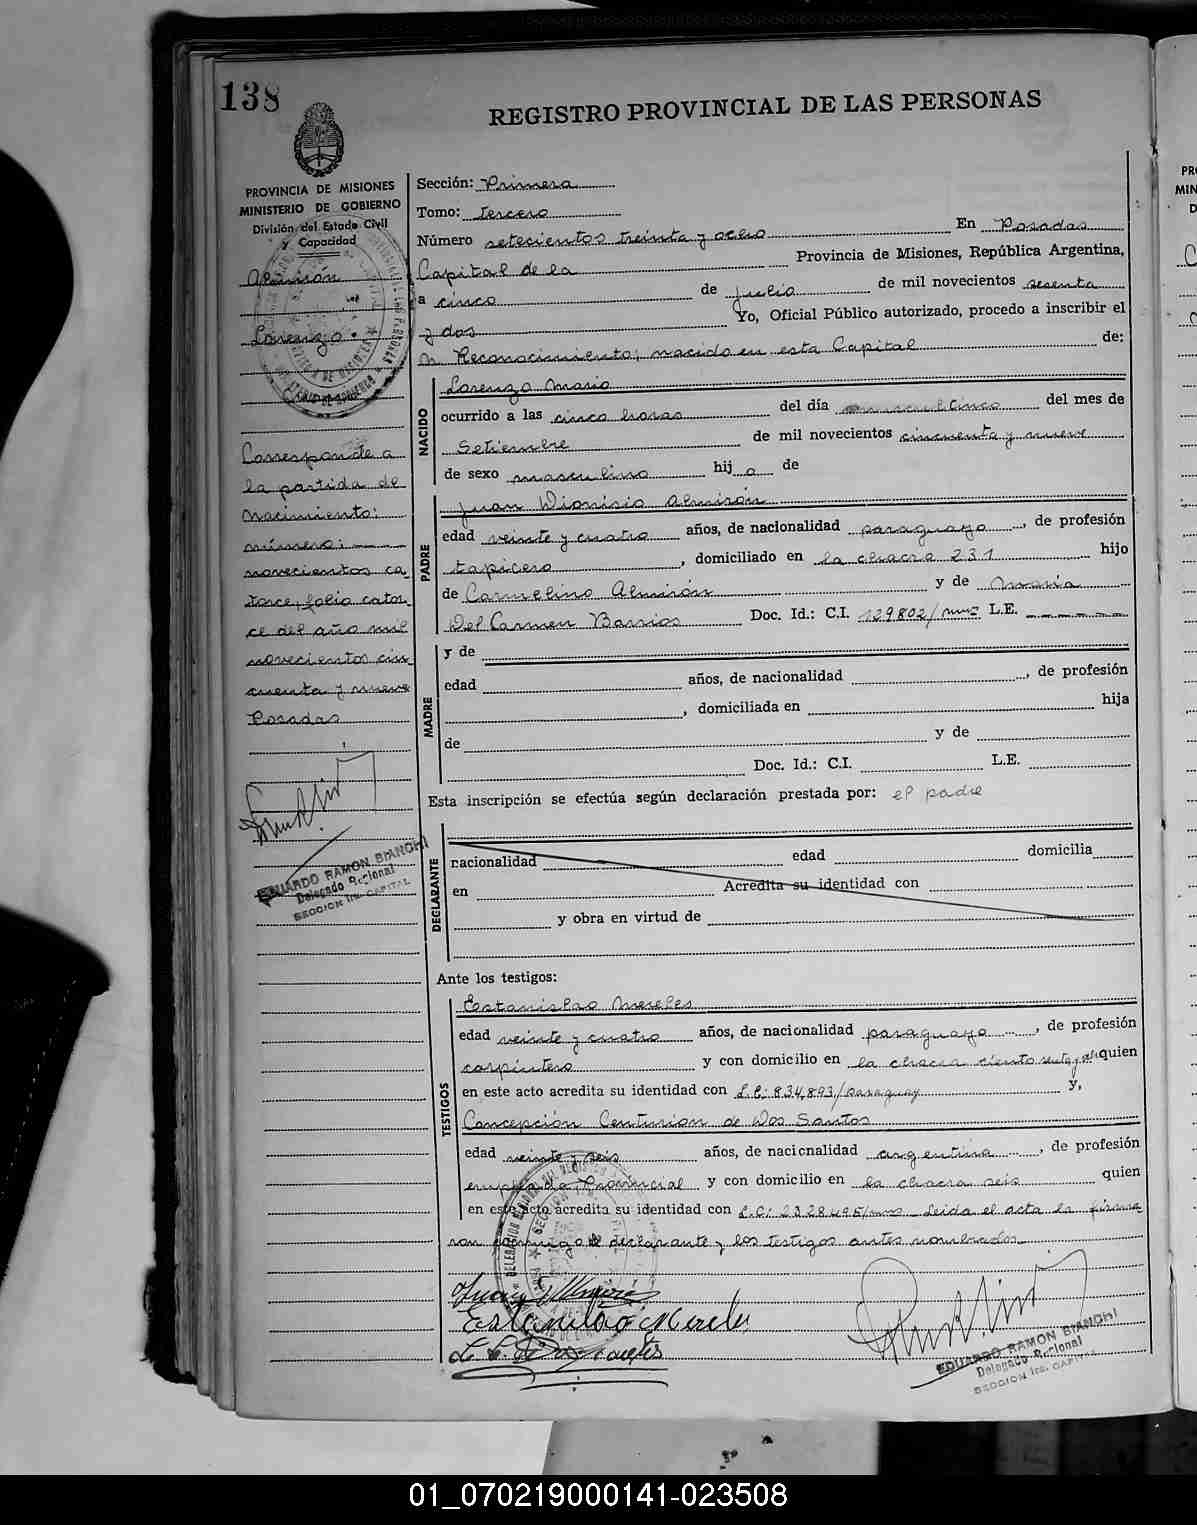 138
REGISTRO PROVINCIAL DE LAS PERSONAS
PROVINCIA DE MISIONES
MINISTERIO DE GOBIERNO
División del Estado Civil
y Capacidad
Almirón
Lorenzo
Corresponde a
la partida de
Nacimiento:
número:
novecientos ca_
torce, folio cator_
ce del año mil
novecientos cin_
cuenta y nueve
Posadas
EDUARDO RAMON BIANCHI
Delegado Regional
SECCION 1ra. CAPITAL
Sección: Primera
Tomo: tercero
Número setecientos treinta y ocho En Posadas
Capital de la Provincia de Misiones, República Argentina,
a cinco de julio de mil novecientos sesenta
y dos Yo, Oficial Público autorizado, procedo a inscribir el
Reconocimiento; nacido en esta Capital de:
NACIDO
Lorenzo Mario
ocurrido a las cinco horas del día cinco del mes de
Setiembre de mil novecientos cincuenta y nueve
de sexo masculino hijo de
PADRE
Juan Dionisio Almirón
edad veinte y cuatro años, de nacionalidad paraguayo, de profesión
tapicero, domiciliado en la chacra 231 hijo
de Carmelino Almirón y de María
Del Carmen Barrios Doc. Id.: C.I. 129802/mnes L.E.
MADRE
y de
edad años, de nacionalidad , de profesión
, domiciliada en hija
de y de
Doc. Id.: C.I. L.E.
Esta inscripción se efectúa según declaración prestada por: el padre
DECLARANTE
nacionalidad edad domicilia
en Acredita su identidad con
y obra en virtud de
Ante los testigos:
TESTIGOS
Estanislao Mereles
edad veinte y cuatro años, de nacionalidad paraguayo, de profesión
carpintero y con domicilio en la chacra ciento quien
en este acto acredita su identidad con 834,893/paraguay y,
Concepción Centurion de Dos Santos
edad veinte y seis años, de nacionalidad argentina, de profesión
empleada Provincial y con domicilio en la chacra seis quien
en este acto acredita su identidad con L.C: 2328495/mnes Leída el acta la firma
ron conmigo el declarante y los testigos antes nombrados
Juan D Almirón
Estanislao Mereles
C. C. de Dos Santos
EDUARDO RAMON BIANCHI
Delegado Regional
SECCION 1ra. CAPITAL
01_070219000141-023508